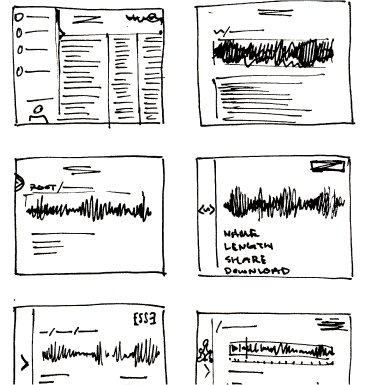 ROOT/
NAME
LENGTH
SHARE
DOWNLOAD